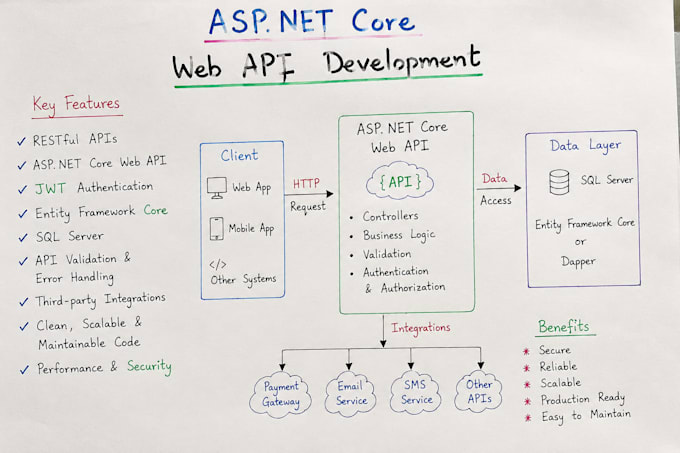 ASP.NET Core
Web API Development
Key Features
✓ RESTful APIs
✓ ASP.NET Core Web API
✓ JWT Authentication
✓ Entity Framework Core
✓ SQL Server
✓ API Validation &
Error Handling
✓ Third-party Integrations
✓ Clean, Scalable &
Maintainable Code
✓ Performance & Security
Client
Web App
Mobile App
</>
Other Systems
HTTP
Request
ASP.NET Core
Web API
{API}
• Controllers
• Business Logic
• Validation
• Authentication
& Authorization
Data
Access
Data Layer
SQL Server
Entity Framework Core
or
Dapper
Integrations
Payment
Gateway
Email
Service
SMS
Service
Other
APIs
Benefits
* Secure
* Reliable
* Scalable
* Production Ready
* Easy to Maintain